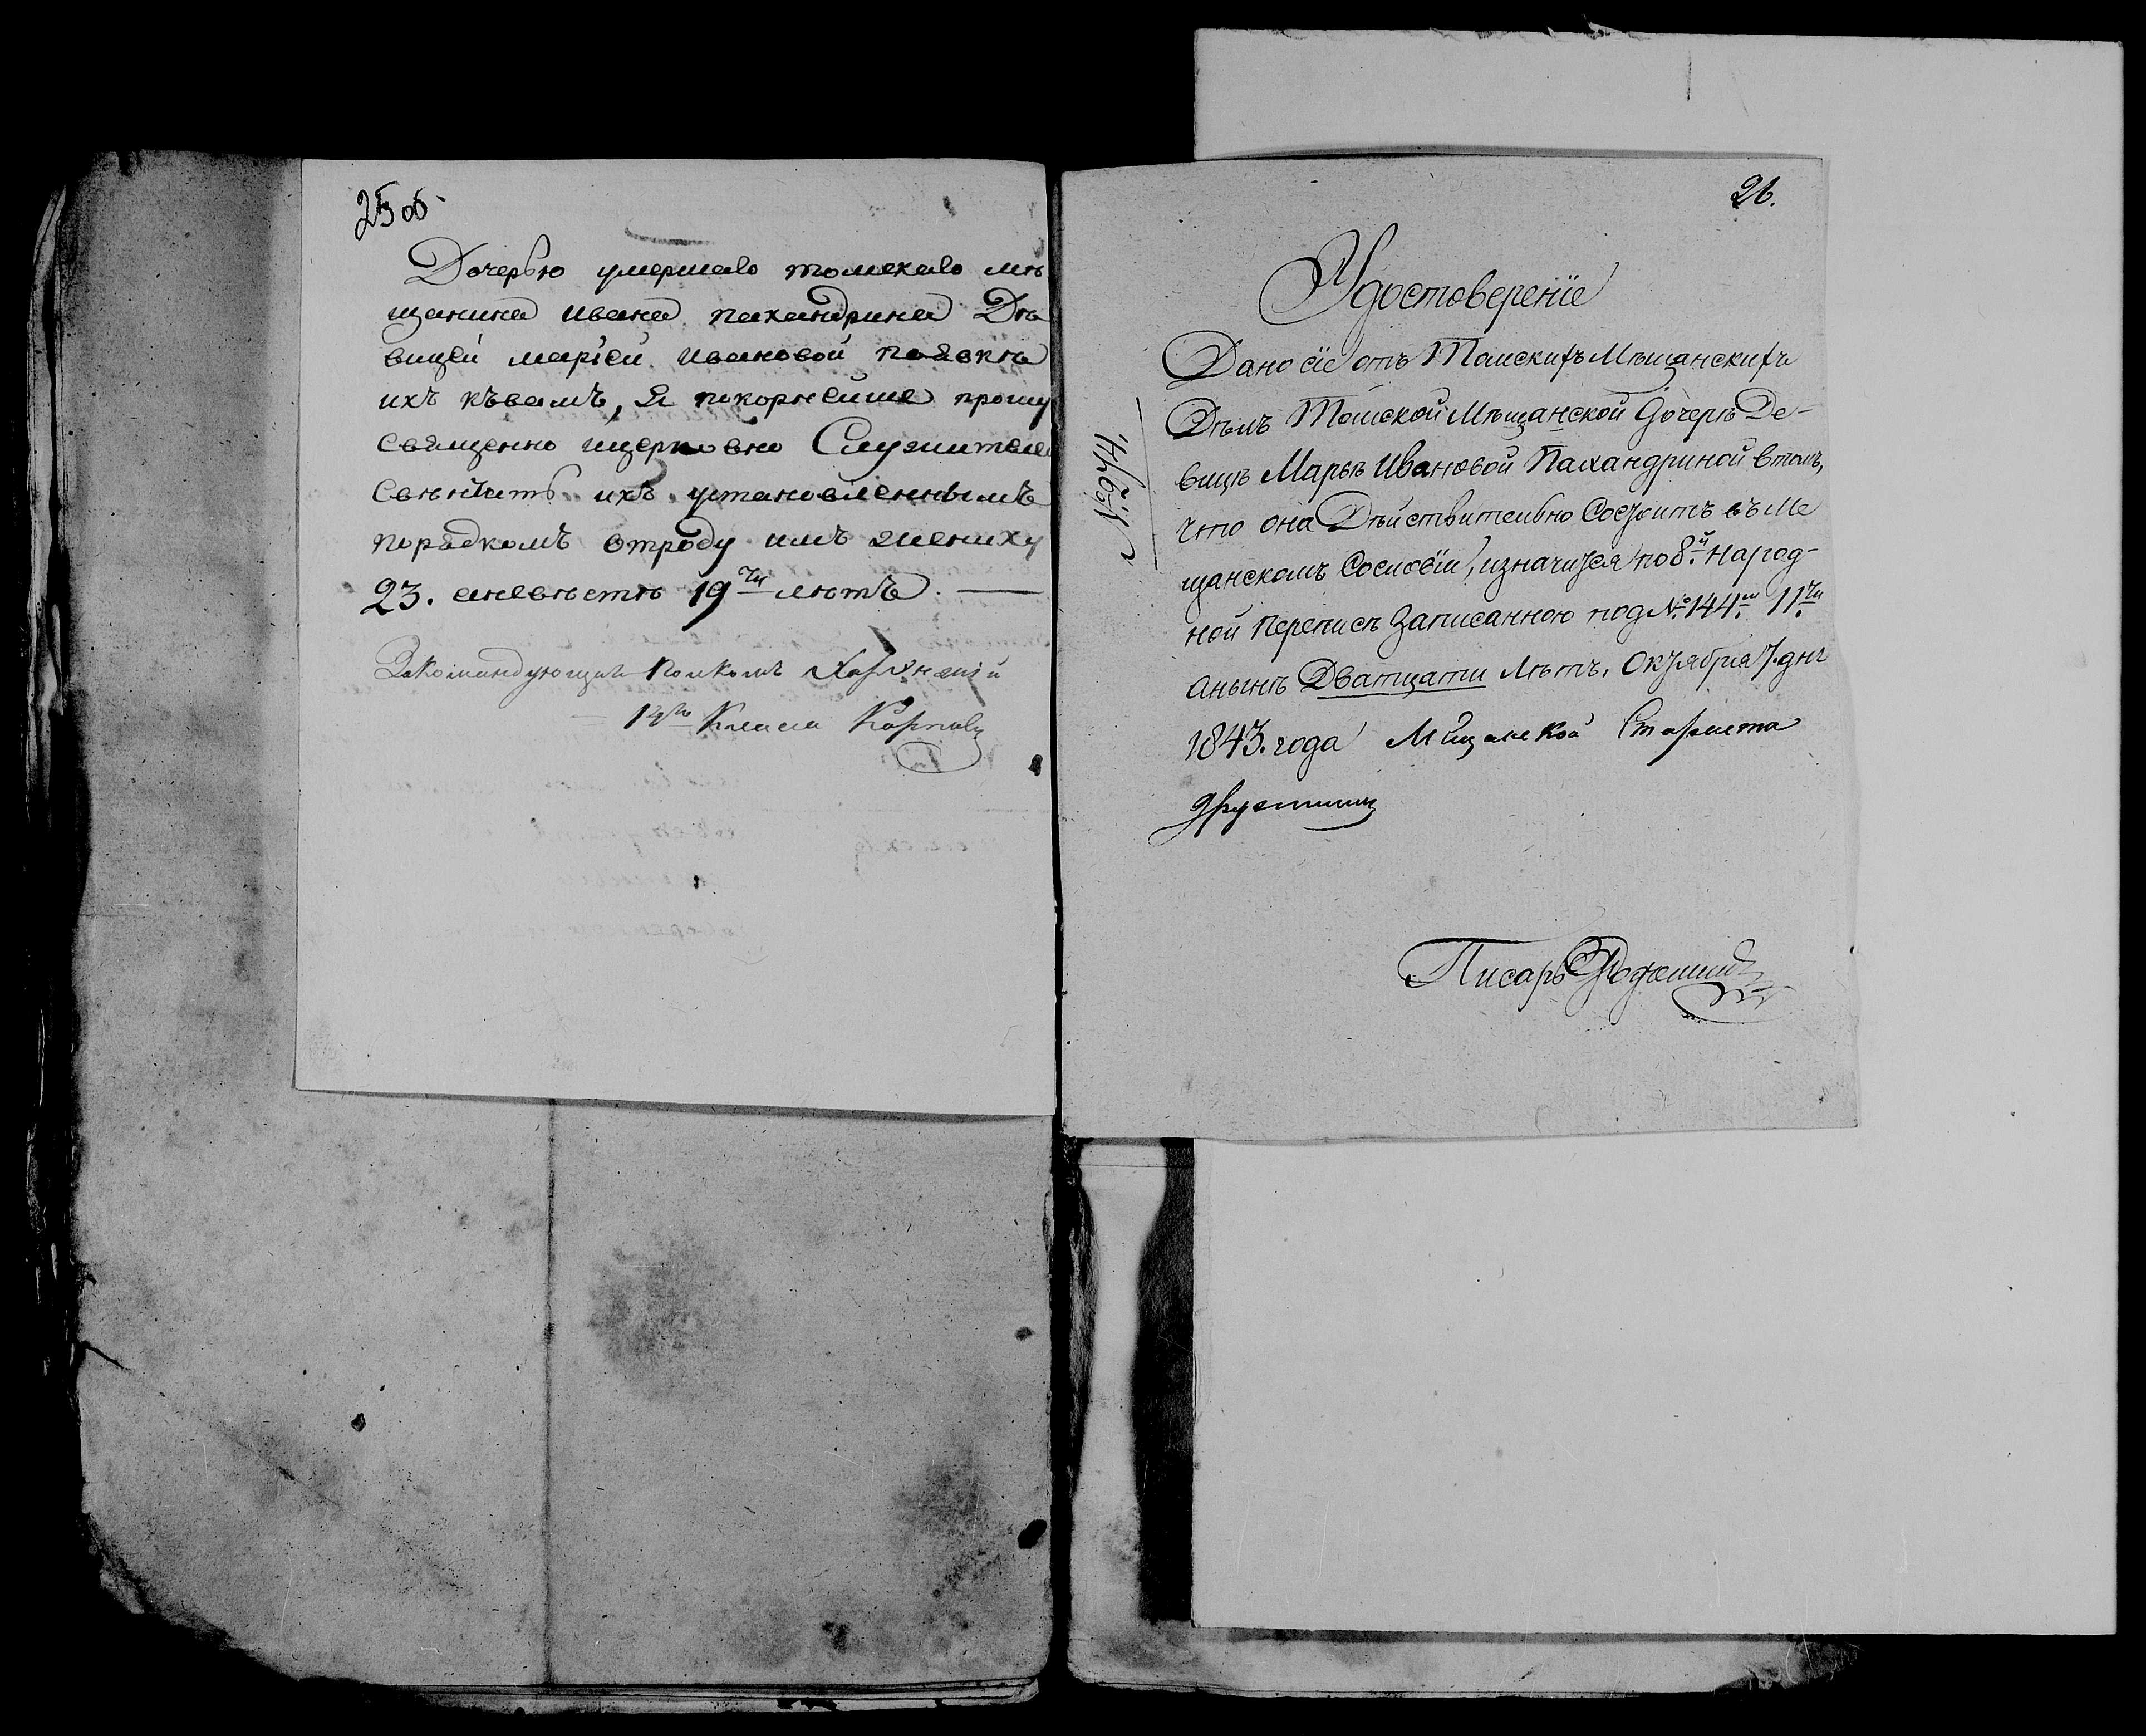 25 об.
Дочерью умершаго томскаго мѣ
щанина ивана пахандрина Дѣ
вицей маріей ивановой появкѣ
ихъ къвамъ, я покорнейше прошу
священно ицерковно Служителей
Свѣнчать ихъ установленнымъ
порядкомъ отроду имъ жениху
23. аневѣсте 19ть лѣтъ. —
Закомандующаго Полкомъ Харунжій
14го Класса Карповъ
26.
Удостоверенїе
Дано сїе отъ Томскихъ Мѣщанскихъ
Дѣлъ Томской Мѣщанской дочерѣ Де-
вицѣ Марьѣ Ивановой Пахандриной втомъ,
что она Дѣйствительно Состоитъ въ Ме
щанскомъ Сословїи, изначится по 8й. народ-
ной переписѣ Записанною под № 144м. 11ти
анынѣ Дватцати лѣтъ. Октября 7. дня
1843. года Мѣщанской Староста
№ 94.
Писарь